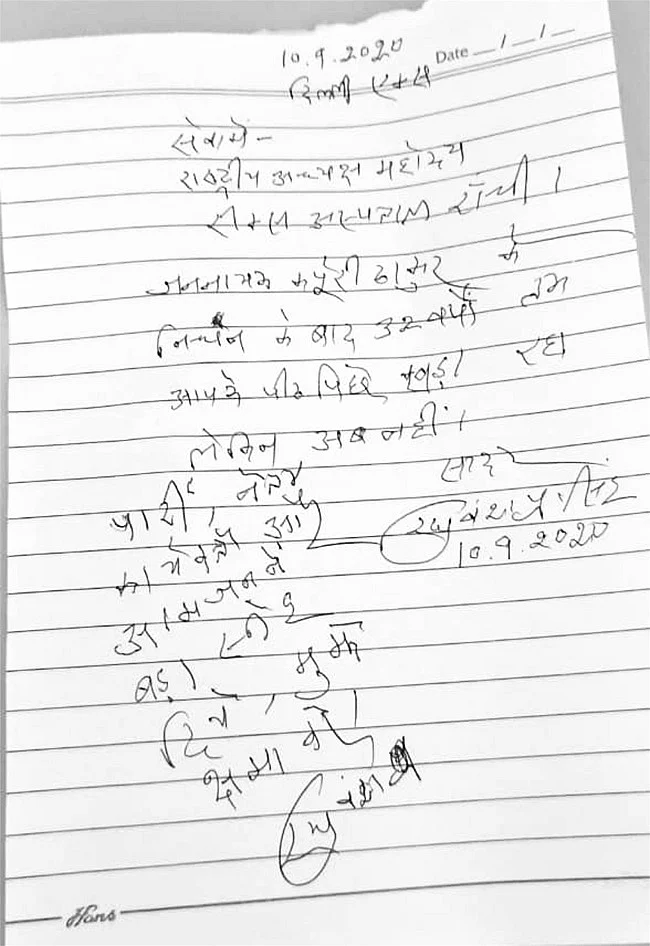 10.9.2020
Date __/__/__
दिल्ली एम्स
सेवामें -
राष्ट्रीय अध्यक्ष महोदय
रीम्स अस्पताल राँची।
जननायक कर्पूरी ठाकुर के
निधन के बाद 32 वर्षों तक
आपके पीठ पिछे खड़ा रहा
लेकिन अब नहीं।
पार्टी, नेता,
कार्यकर्ता और
आमजन ने
बड़ा स्नेह
दिया, मुझे
क्षमा करें।
सादर
रघुवंश प्र० सिंह
10.9.2020
रघुवंश
Hans